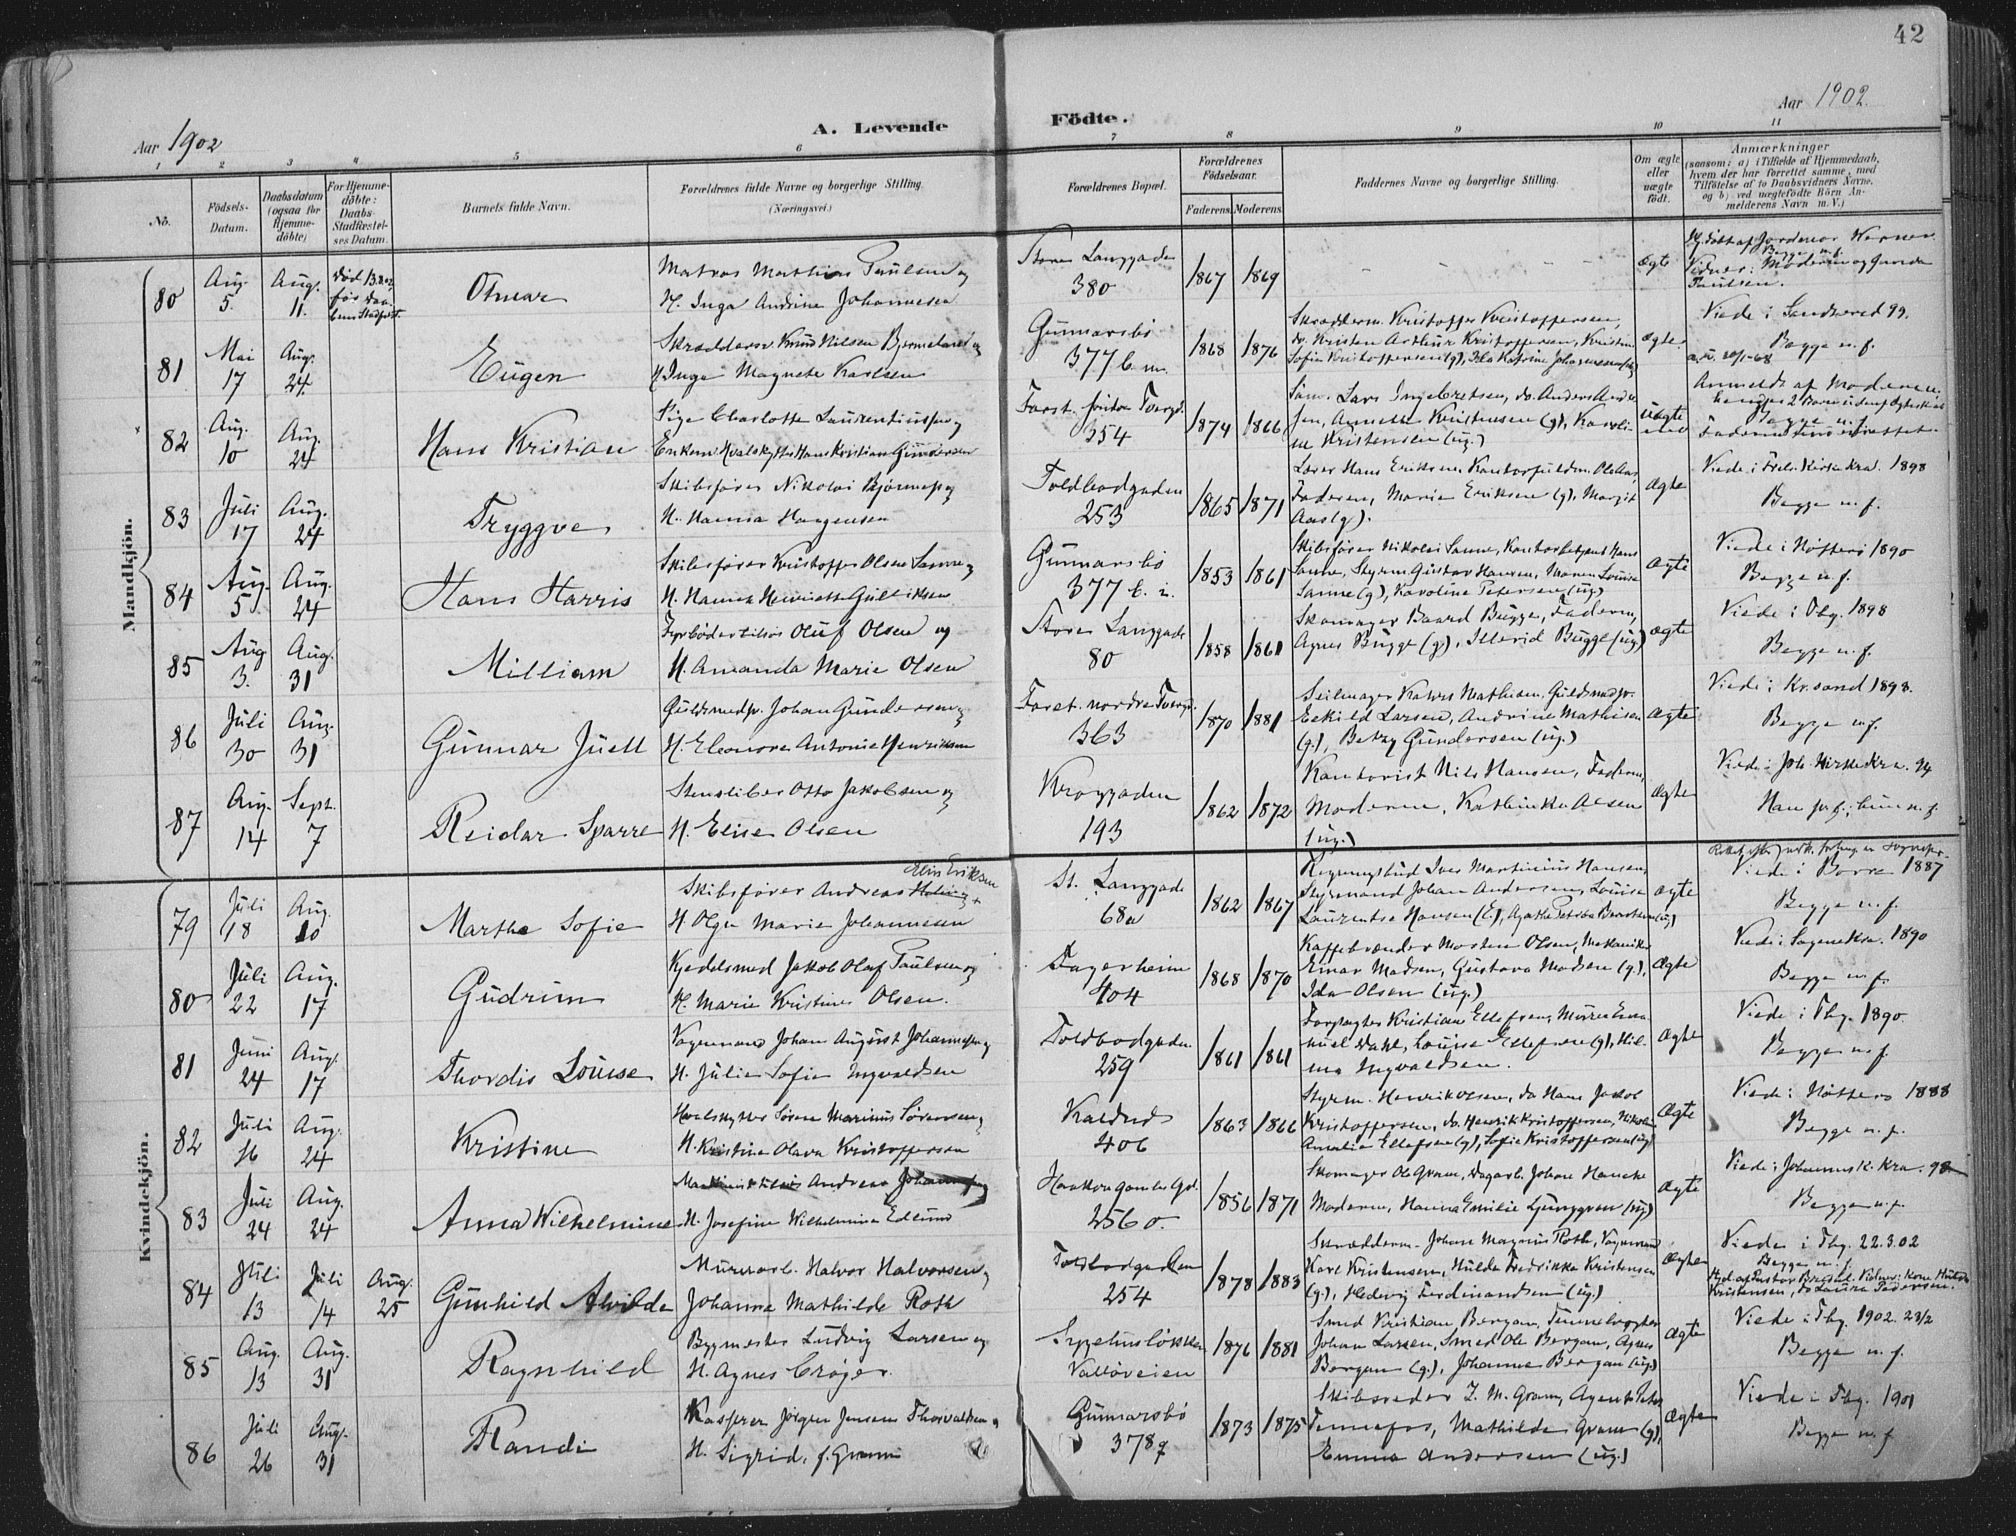 42
Aar 1902
A. Levende
Födte.
Aar 1902.
1 2 3 4 5 6 7 8 9 10 11
No.
Födsels-
Datum.
Daabsdatum
(ogsaa for
Hjemme-
döbte)
For Hjemme-
döbte:
Daabs-
Stadfæstel-
ses Datum.
Barnets fulde Navn.
Forældrenes fulde Navne og borgerlige Stilling.
(Næringsvei.)
Forældrenes Bopæl.
Forældrenes
Födselsaar.
Faderens. Moderens.
Faddernes Navne og borgerlige Stilling.
Om ægte
eller
uægte
födt.
Anmærkninger
(saasom: a) i Tilfælde af Hjemmedaab,
hvem der har forrettet samme, med
Tilföielse af to Daabsvidners Navne,
og b) ved uægtefödte Börn An-
melderens Navn m. V.)
Mandkjön.
80 Aug. 5. Aug. 11. Død 13.8.02 før Daabens Stadfæst.
Otmar
Matros Mathias Paulsen og
H. Inga Andrine Johannesen
Store Langgade
380
1867 1869
ægte
Hj.døbt af Jordemor Werner
Begge n.f.
Vidner: Moderen og Gunda
Paulsen.
81 Mai 17 Aug. 24
Eugen
Skrædderm. Knud Nilsen Bjermeland og
H. Inga Magnete Karlsen
Gunnarsbö
377 b.m.
1868 1876
Skrædderm. Kristoffer Kristoffersen,
do. Kristen Arthur Kristoffersen, Kristine
Sofie Kristoffersen (g), Ida Katrine Johannesen (ug)
ægte
Viede i Sandhered 99.
Begge n.f.
82 Aug. 10 Aug. 24
Hans Kristian
Pige Charlotte Laurentiussen og
Enkem. Hvalskytter Hans Kristian Gundersen
Farst. søndre Tvergd.
354
1874 1866
Søm. Lars Ingebretsen, do. Anders Andre
sen, Annette Kristensen (g), Karoli-
ne Kristensen (ug.)
uægte
Anmeldt af Moderen,
Begge n.f.
83 Juli 17 Aug. 24
Tryggve
Skibsfører Nikolai Bjønnes og
H. Hanna Haagensen
Toldbodgaden
253
1865 1871
Lærer Hans Eriksen, Kontorfuldm. Ole Aas,
Faderen, Marie Eriksen (g), Margit
Aas (g).
ægte
Viede i Frels. Kirke Kra. 1898
Begge n.f.
84 Aug. 5 Aug. 24
Hans Harris
Skibsfører Kristoffer Olsen Sanne og
H. Hanna Henriette Gulliksen
Gunnarsbö
377 b. i.
1853 1861
Skibsfører Nikolai Sanne, Kontorbetjent Hans
Sanne, Styrm. Gustav Hansen, Maren Louise
Sanne (g), Karoline Petersen (ug)
ægte
Viede i Nøtterö 1890
Begge n.f.
85 Aug 3. Aug. 31
William
Fyrbøder tilsös Oluf Olsen og
H. Amanda Marie Olsen
Store Langgade
80
1858 1861
Skomager Baard Bugge, Faderen,
Agnes Bugge (g), Isterid Bugge (ug)
ægte
Viede i Tbg. 1898
Begge n.f.
86 Juli 30 Aug. 31
Gunnar Juell
Guldsmedsv. Johan Gundersen og
H. Eleonora Antonie Henriksen
Farst. nordre Tvergd.
363
1870 1881
Seilmager Hans Mathisen, Guldsmedsv.
Eskild Larsen, Andrine Mathisen
(g.), Betzy Gundersen (ug.)
ægte
Viede i Kr.sand 1898.
Begge n.f.
87 Aug. 14 Sept. 7
Reidar Sparre
Stensliber Otto Jakobsen og
H. Elise Olsen
Kroggaden
193
1862 1872
Kontorist Nils Hansen, Faderen,
Moderen, Kathinka Olsen
(ug.)
ægte
Viede i Joh. Kirke Kra. 94
Kvindekjön.
79 Juli 18 Aug. 10
Marthe Sofie
Elin Eriksen
Skibsfører Andreas
H. Olga Marie Johannesen
St. Langgade
68a
1862 1867
Bygningsbud Iver Martinius Hansen
Styrmand Johan Andersen, Louise
Laurentse Hansen (E), Agathe Petrea Berntsen (ug)
ægte
Viede i Borre 1887
Begge n.f.
80 Juli 22 Aug. 17
Gudrun
Kjedelsmed Jakob Olaf Paulsen og
H. Marie Kristine Olsen.
Fagerheim
404
1868 1870
Kaffebrænder Morten Olsen, Mekaniker
Einar Madsen, Gustava Madsen (g.),
Ida Olsen (ug.)
ægte
Viede i Sagene Kra. 1890
Begge n.f.
81 Juni 24 Aug. 17
Thordis Louise
Vognmand Johan August Johannessen og
H. Julie Sofie Ingvaldsen
Toldbodgaden
259
1861 1861
Forpagter Kristian Ellefsen, Murer Ema-
nuel Dahl, Louise Ellefsen (g), Hil-
ma Ingvaldsen.
ægte
Viede i Tbg. 1890.
Begge n.f.
82 Juli 16 Aug. 24
Kristine
Hvalskytter Søren Marinus Sørensen og
H. Kristine Olava Kristoffersen
Kaldnes
406
1863 1866
Styrm. Henrik Olsen, do Hans Jakob
Kristoffersen, do. Henrik Kristoffersen, Nikoline
Amalia Ellefsen (g), Sofie Kristoffersen (ug)
ægte
Viede i Nøtterö 1888
Begge n.f.
83 Juli 24 Aug. 24
Anna Wilhelmine
Maskinist tilsös Andreas Johannsen og
H. Josefine Wilhelmina Edlund
Haakon gamles Gd.
256 o.
1856 1871
Skomager Ole Gram, Dagarb. Johan Hancke
Moderen, Hanna Emilie Ljunggren (ug)
ægte
Viede i Johannes K. Kra. 98
Begge n.f.
84 Juli 13 Juli 14 Aug. 25
Gunhild Alvilde
Murerarb. Halvor Halvorsen og
Johanna Mathilde Roth
Toldbodgaden
254
1878 1883
Skrædderm. Johan Magnus Roth, Vognmand
Karl Kristensen, Hulda Fredrikke Kristensen
(g.), Hedvig Ferdinandsen (ug.)
ægte
Viede i Tbg. 22.3.02
Begge n.f.
Hjd. af Pastor Bredal. Vidner: Kone Hulda
Kristensen, do Laura Pedersen.
85 Aug. 13 Aug. 31
Ragnhild
Bygmester Ludvig Larsen og
H. Agnes Crøger.
Vallöveien
1876 1881
Smed Kristian Bergan, Tømmerhugger
Johan Larsen, Smed Ole Bergan, Agnes
Bergan (g.), Johanne Bergan (ug.)
ægte
Viede i Tbg. 1902. 23/2
Begge n.f.
86 Juli 26 Aug. 31
Randi
Kasserer Jörgen Jensen Thorvaldsen og
H. Sigrid, f. Gram
Gunnarsbö
378 q
1873 1875
Skibsreder I. M. Gram, Agent Peter
Tennefos, Mathilde Gram (g),
Emma Andersen (ug.)
ægte
Viede i Tbg. 1901
Begge n.f.